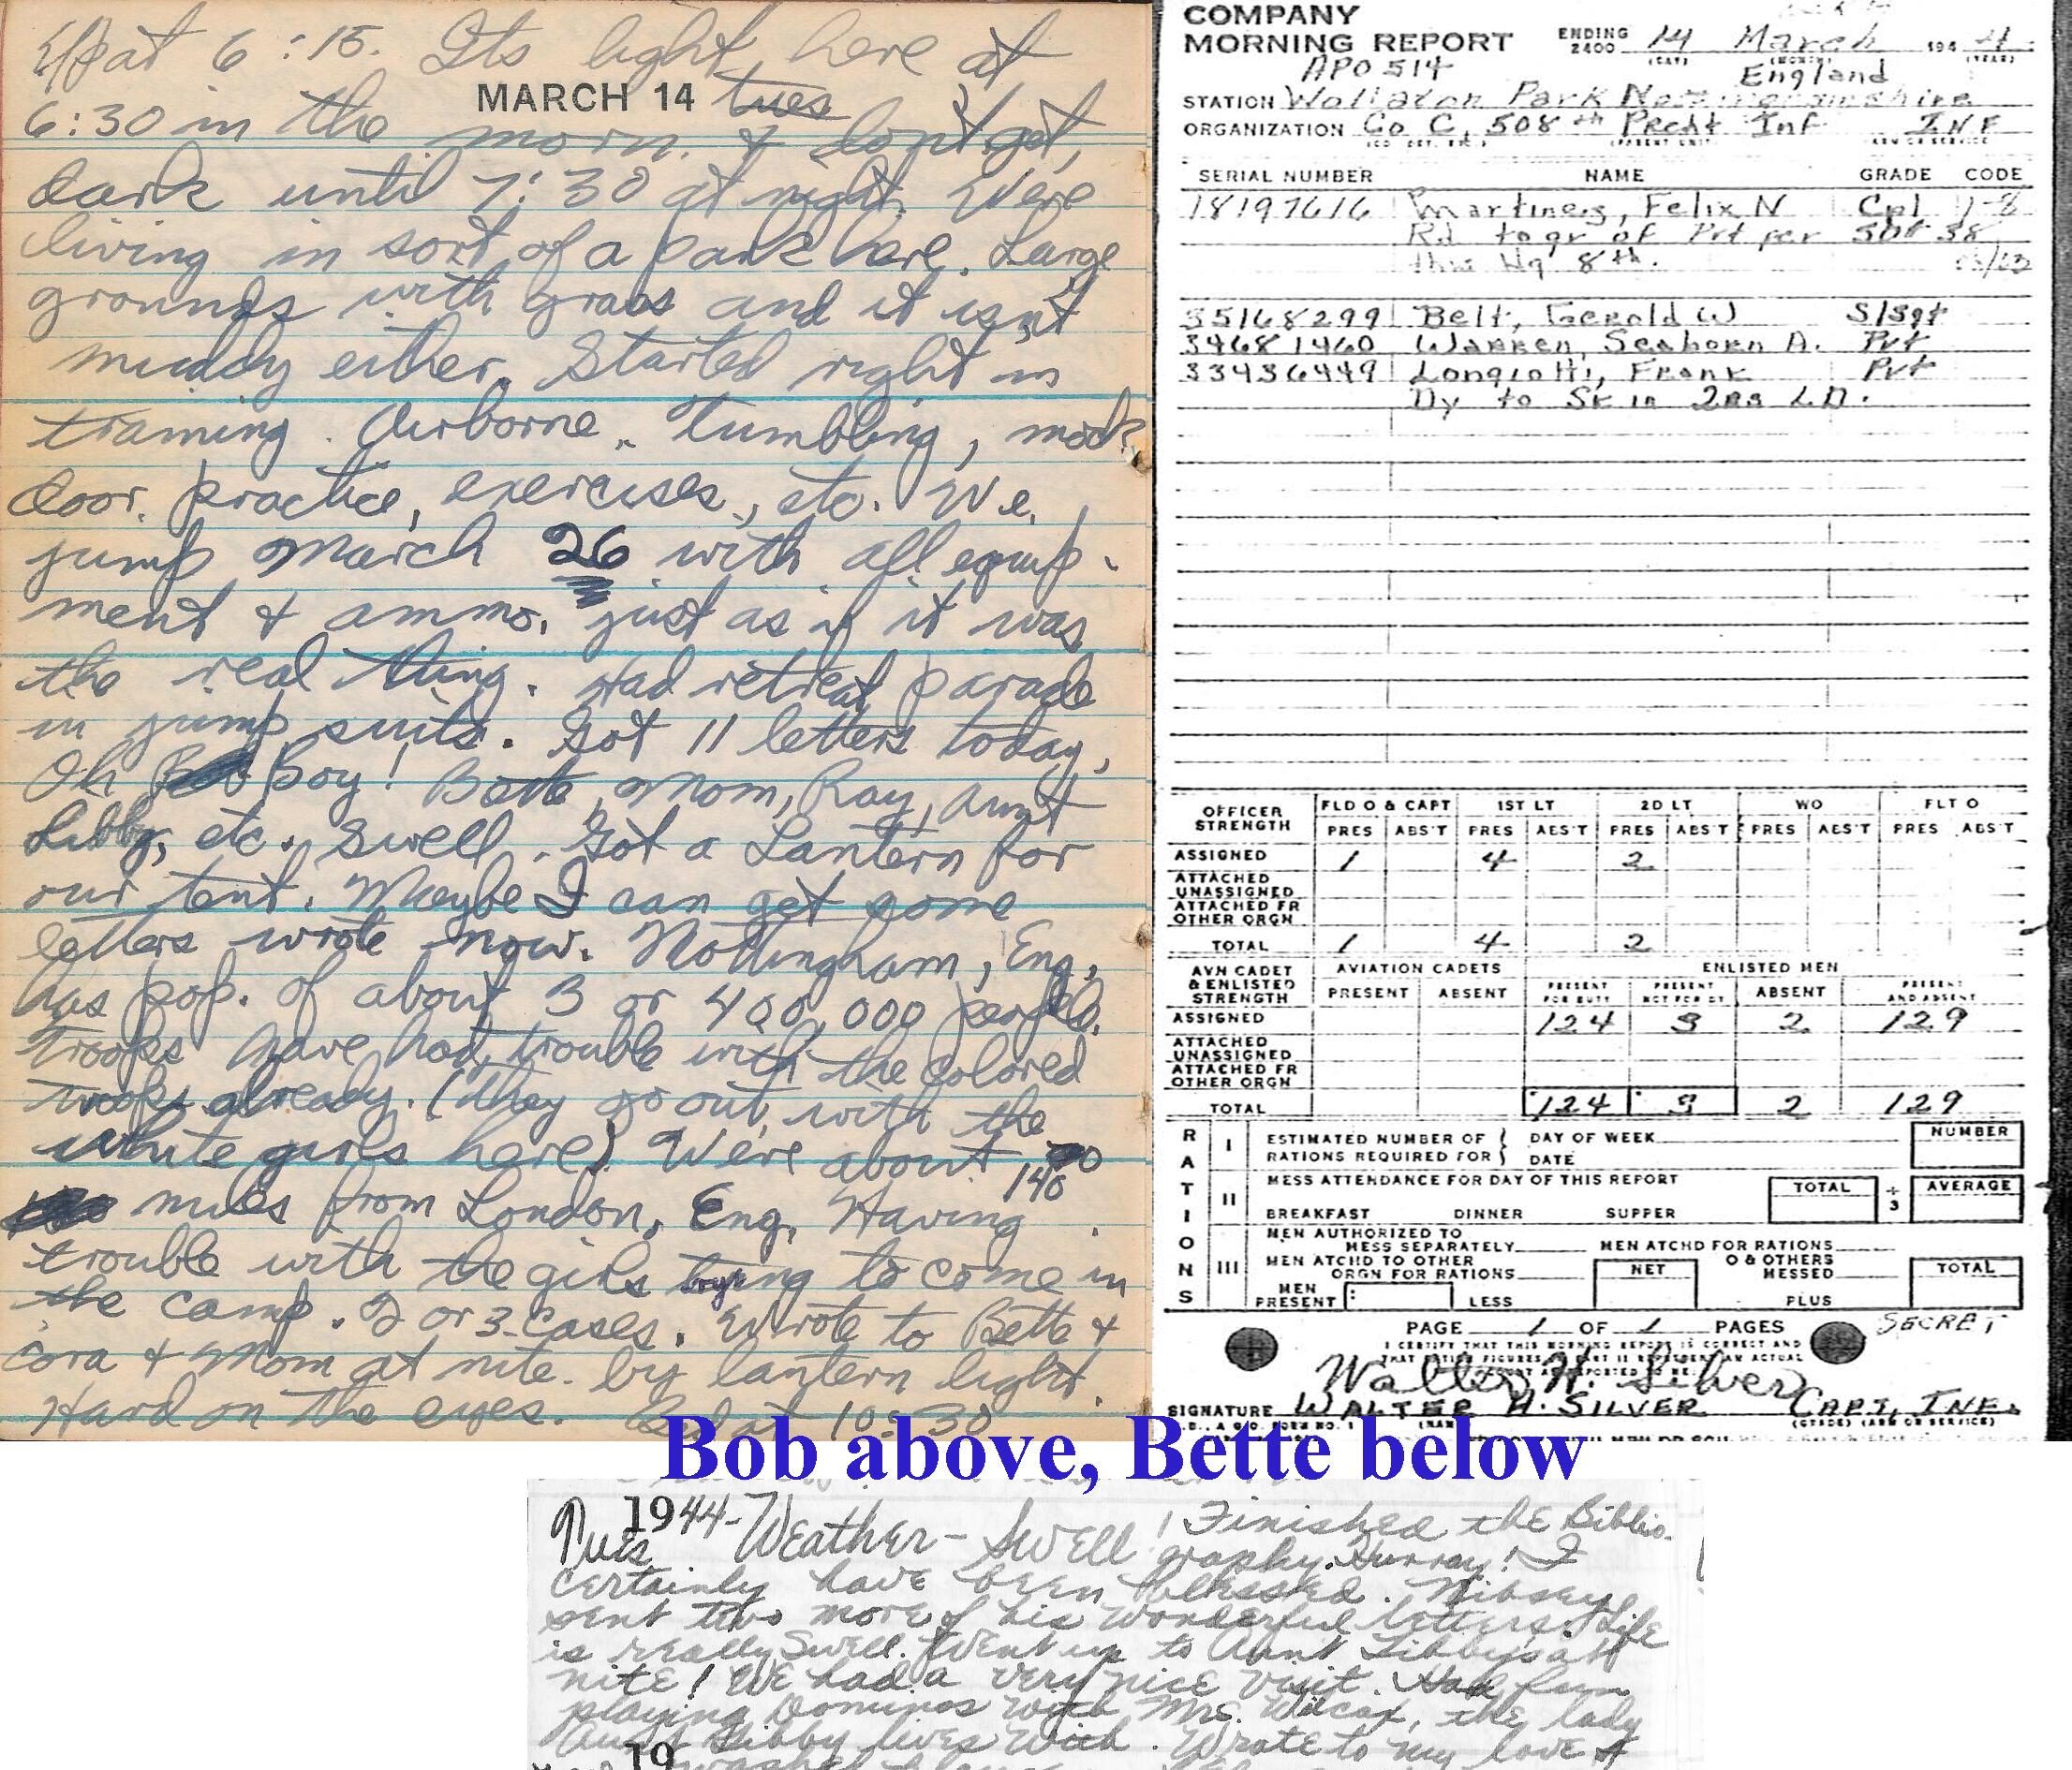 Up at 6:15. Its light here at
MARCH 14 Tues
6:30 in the morn. & don't get
dark until 7:30 at night. We're
living in sort of a park here. Large
grounds with grass and it isn't
muddy either. Started right in
training. Airborne. Tumbling, mock
door practice, exercises, etc. We
jump March 26 with all equip-
ment & ammo. just as if it was
the real thing. Had retreat parade
in jump suits. Got 11 letters today,
Oh Boy! Bette, Mom, Ray, Aunt
Libby, etc. Swell. Got a Lantern for
our tent. Maybe I can get some
letters wrote now. Nottingham, Eng,
has pop. of about 3 or 400,000 people.
Troops have had trouble with the colored
troops already. (They go out with the
white girls here). We're about 140
miles from London, Eng. Having
trouble with the girls trying to come in
the camp. 2 or 3 cases. Wrote to Bette &
Cora & Mom at nite by lantern light.
Hard on the eyes. Bed at 10:30
COMPANY
MORNING REPORT ENDING 2400 14 March 1944
(DAY) (MONTH) (YEAR)
APO 514 England
STATION Wollaton Park Nottinghamshire
ORGANIZATION Co C, 508th Prcht Inf INF
SERIAL NUMBER NAME GRADE CODE
18197616 Martinez, Felix N Cpl 1-8
Rd to gr of Pvt per SO# 38
this Hq 8th.
35168299 Belt, Gerold W S/Sgt
34681460 Warren, Seaborn A. Pvt
33436449 Longiotti, Frank Pvt
Dy to Sk in Qrs LD.
OFFICER STRENGTH FLD O & CAPT 1ST LT 2D LT WO FLT O
PRES ABS'T PRES ABS'T PRES ABS'T PRES ABS'T PRES ABS'T
ASSIGNED 1 4 2
ATTACHED UNASSIGNED
ATTACHED FR OTHER ORGN
TOTAL 1 4 2
AVN CADET & ENLISTED STRENGTH AVIATION CADETS ENLISTED MEN
PRESENT ABSENT PRESENT FOR DUTY PRESENT NOT FOR DY ABSENT PRESENT AND ABSENT
ASSIGNED 124 3 2 129
ATTACHED UNASSIGNED
ATTACHED FR OTHER ORGN
TOTAL 124 3 2 129
RATIONS
I ESTIMATED NUMBER OF RATIONS REQUIRED FOR DAY OF WEEK DATE NUMBER
II MESS ATTENDANCE FOR DAY OF THIS REPORT TOTAL ÷ 3 AVERAGE
BREAKFAST DINNER SUPPER
III MEN AUTHORIZED TO MESS SEPARATELY MEN ATCHD FOR RATIONS
MEN ATCHD TO OTHER ORGN FOR RATIONS NET O & OTHERS MESSED TOTAL
MEN PRESENT LESS PLUS
PAGE 1 OF 1 PAGES SECRET
I CERTIFY THAT THIS MORNING REPORT IS CORRECT AND
Walter H. Silver
SIGNATURE WALTER H. SILVER CAPT, INF.
(GRADE) (ARM OR SERVICE)
Bob above, Bette below
1944- Weather - Swell! Finished the Biblio-
Tues graphy. Hurray! I
certainly have been blessed. Nibsey
sent two more of his wonderful letters. Life
is really Swell. Went up to Aunt Libby's at
nite! We had a very nice visit. Had fun
playing Dominos with Mrs. Wilcox, the lady
Aunt Libby lives with. Wrote to my love &
19